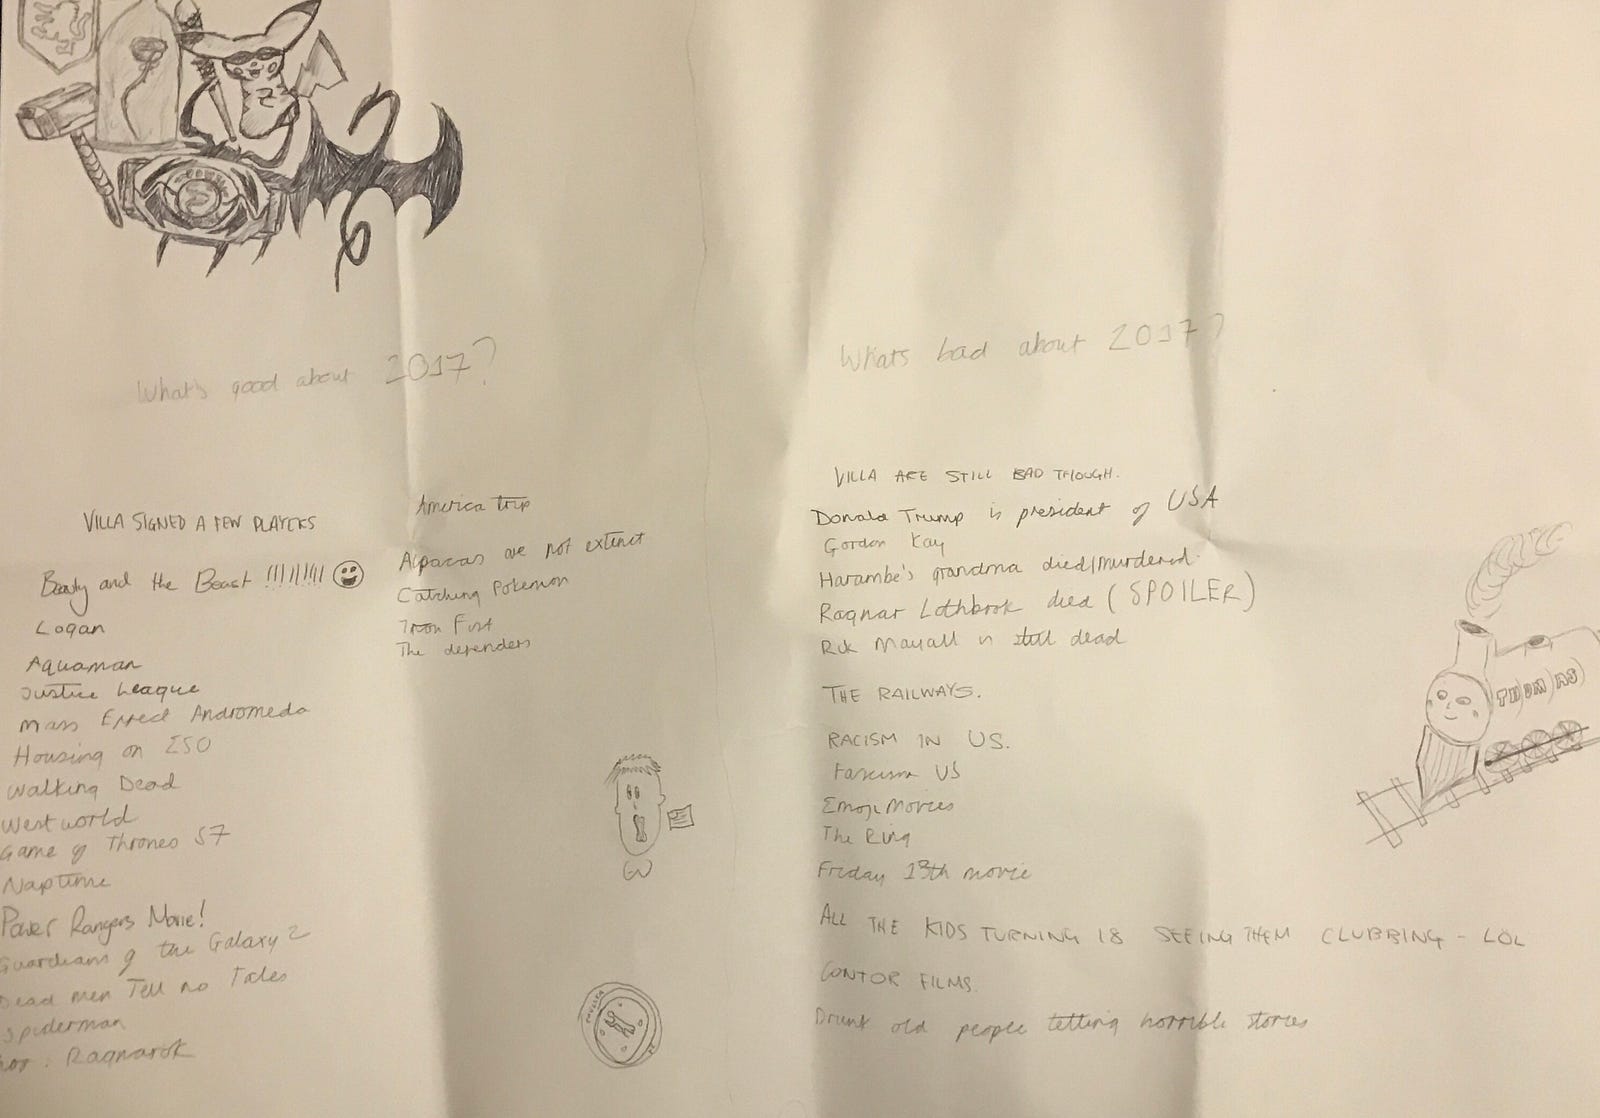 What's good about 2017?
VILLA SIGNED A FEW PLAYERS
Beauty and the Beast !!!!!!!!!
Logan
Aquaman
Justice League
Mass Effect Andromeda
Housing on ESO
Walking Dead
Westworld
Game of Thrones S7
Naptime
Power Rangers Movie!
Guardians of the Galaxy 2
Dead men Tell no Tales
Spiderman
Ragnarok
America trip
Alpacas are not extinct
Catching Pokemon
Iron Fist
The defenders
Whats bad about 2017?
VILLA ARE STILL BAD THOUGH.
Donald Trump is president of USA
Gorden Kay
Harambe's grandma died/murdered.
Ragnar Lothbrok died (SPOILER)
Rik Mayall is still dead
THE RAILWAYS.
RACISM IN US.
Fascism US
Emoji Movies
The Ring
Friday 13th movie
ALL THE KIDS TURNING 18 SEEING THEM CLUBBING - LOL
Drunk old people telling horrible stories
THOMAS